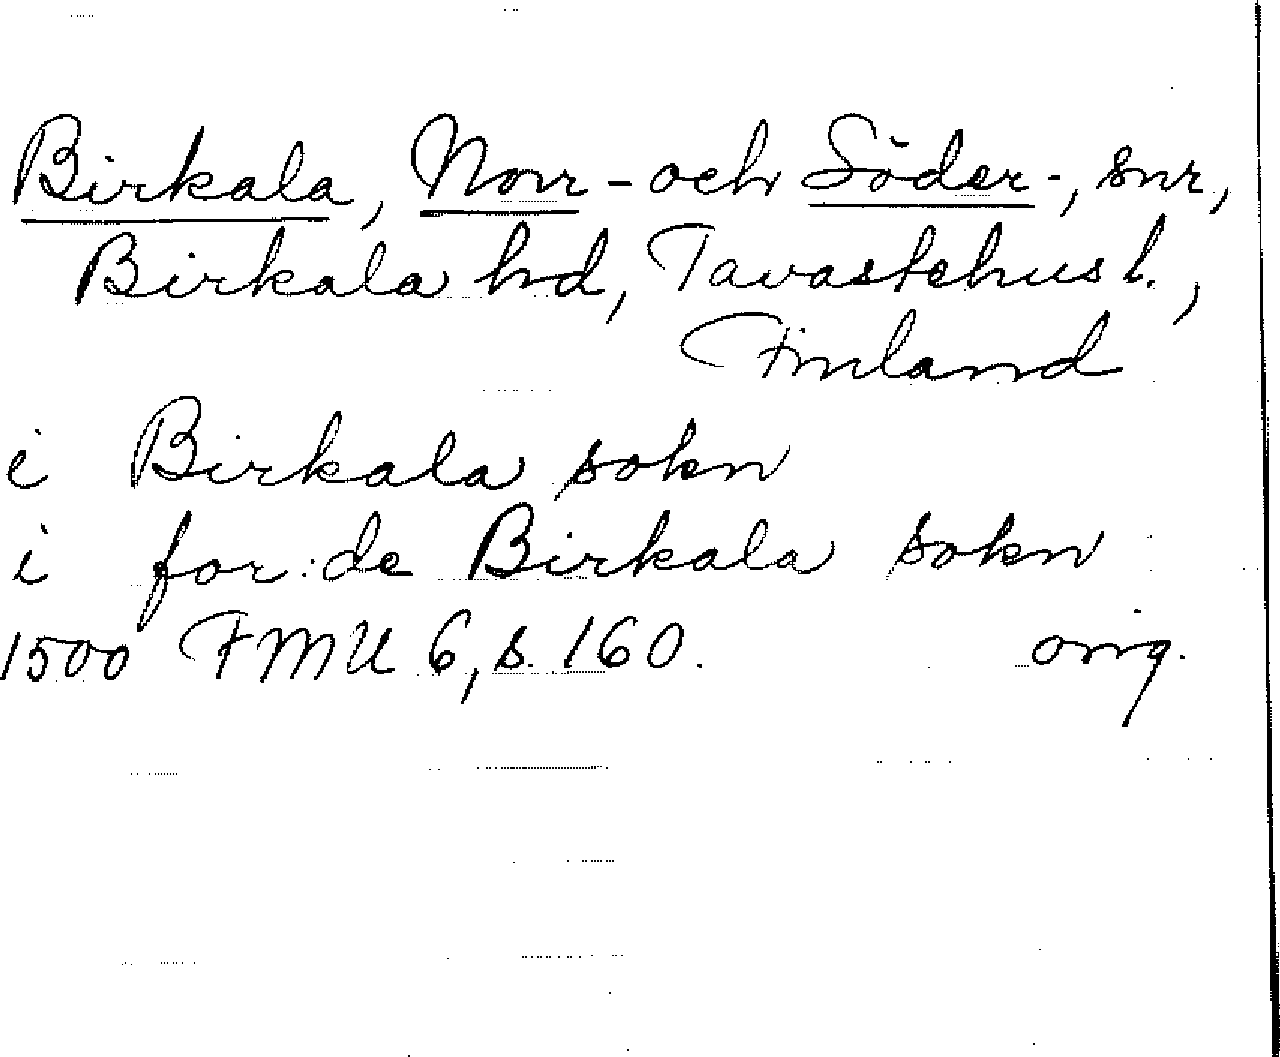 Birkala, Norr- och Söder-, snr,
Birkala hd, Tavastehus l.,
Finland
i Birkala sokn
i for:de Birkala sokn
1500 FMU 6, s. 160. orig.